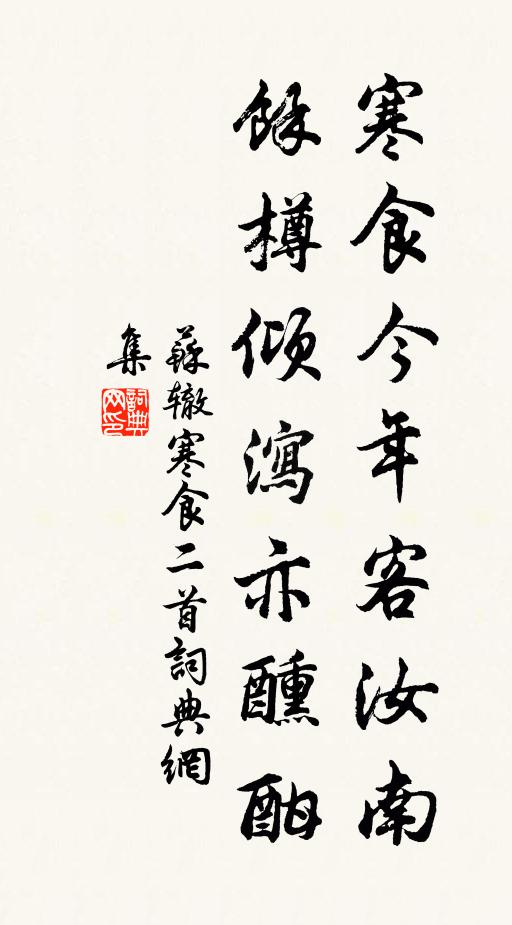 寒食今年客汝南
餘樽傾瀉亦醺酣
蘇轍寒食二首詞典網
集
詞典网印